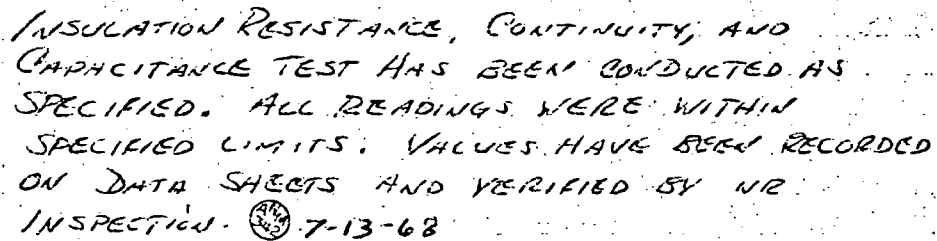 INSULATION RESISTANCE, CONTINUITY, AND
CAPACITANCE TEST HAS BEEN CONDUCTED AS
SPECIFIED. ALL READINGS WERE WITHIN
SPECIFIED LIMITS. VALUES HAVE BEEN RECORDED
ON DATA SHEETS AND VERIFIED BY NR
INSPECTION. 7-13-68